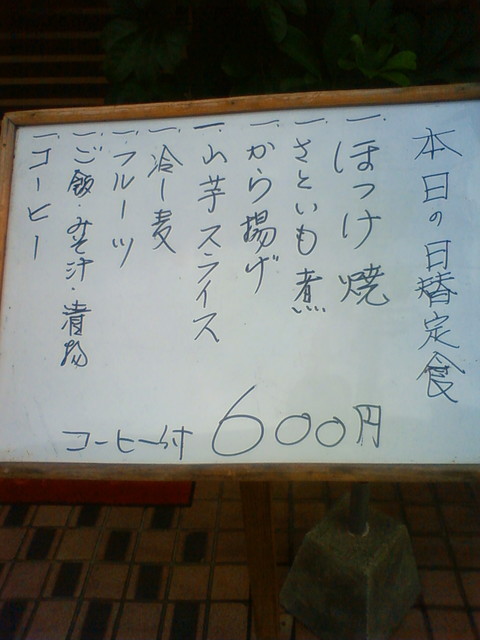 本日の日替定食
一.ほっけ焼
一.さといも煮
一.から揚げ
一.山芋スライス
一.冷し麦
一.フルーツ
一.ご飯・みそ汁・漬物
一.コーヒー
コーヒー付 600円